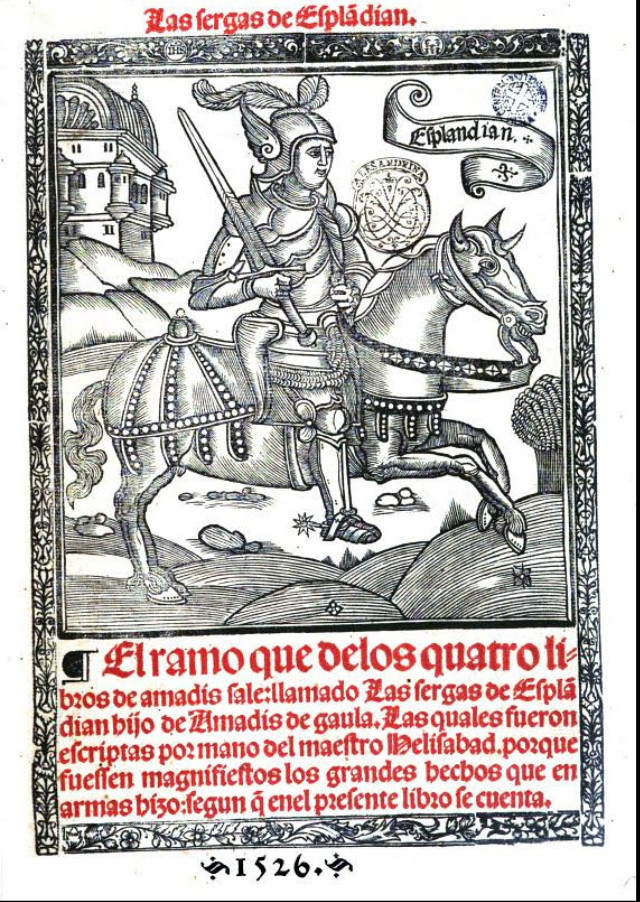 Las sergas de Esplādian.
Esplandian.
¶ El ramo que delos quatro li⸗
bros de amadis sale: llamado Las sergas de Esplā
dian hijo de Amadis de gaula. Las quales fueron
escriptas por mano del maestro Helisabad. porque
fuessen magnifiestos los grandes hechos que en
armas hizo: segun q̄ enel presente libro se cuenta.
1526.